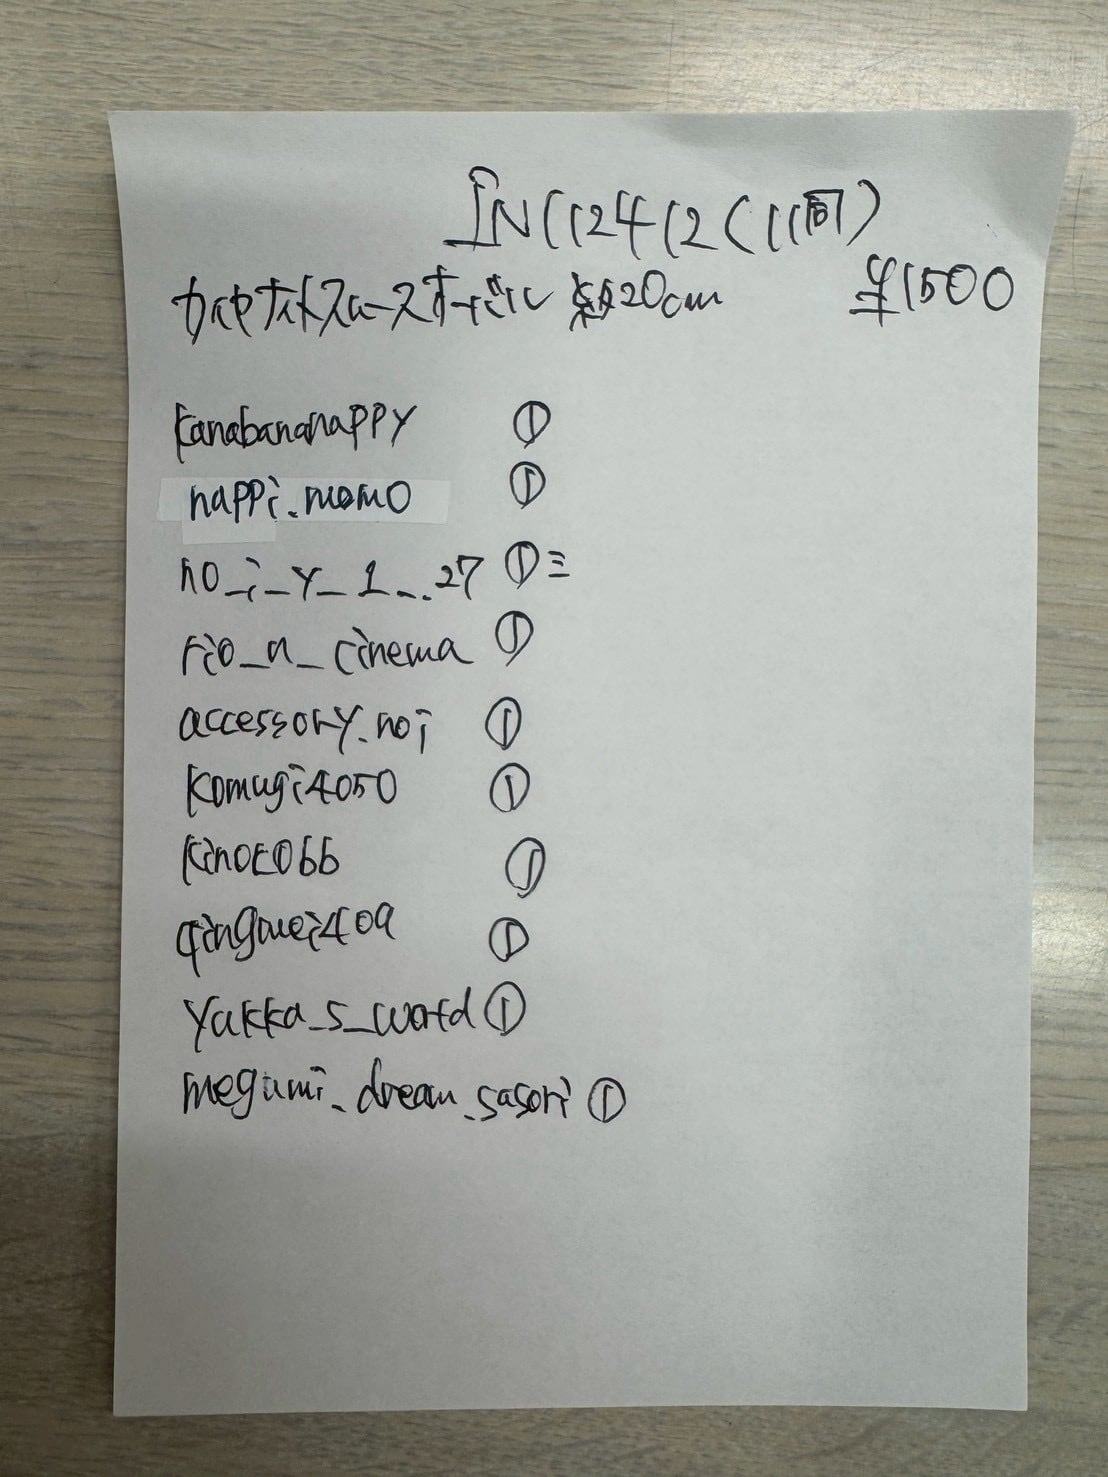 IN112412(11問)
カイヤナイトスムースオーバル 約20cm ¥1500
kanabananappy ①
nappi.momo ①
no_i_y_1_..27 ①三
rio_a_cinema ①
accessory.noi ①
komugi4050 ①
kinoto66 ①
qingmei409 ①
yukka_s_world ①
megumi_dream.sasori ①